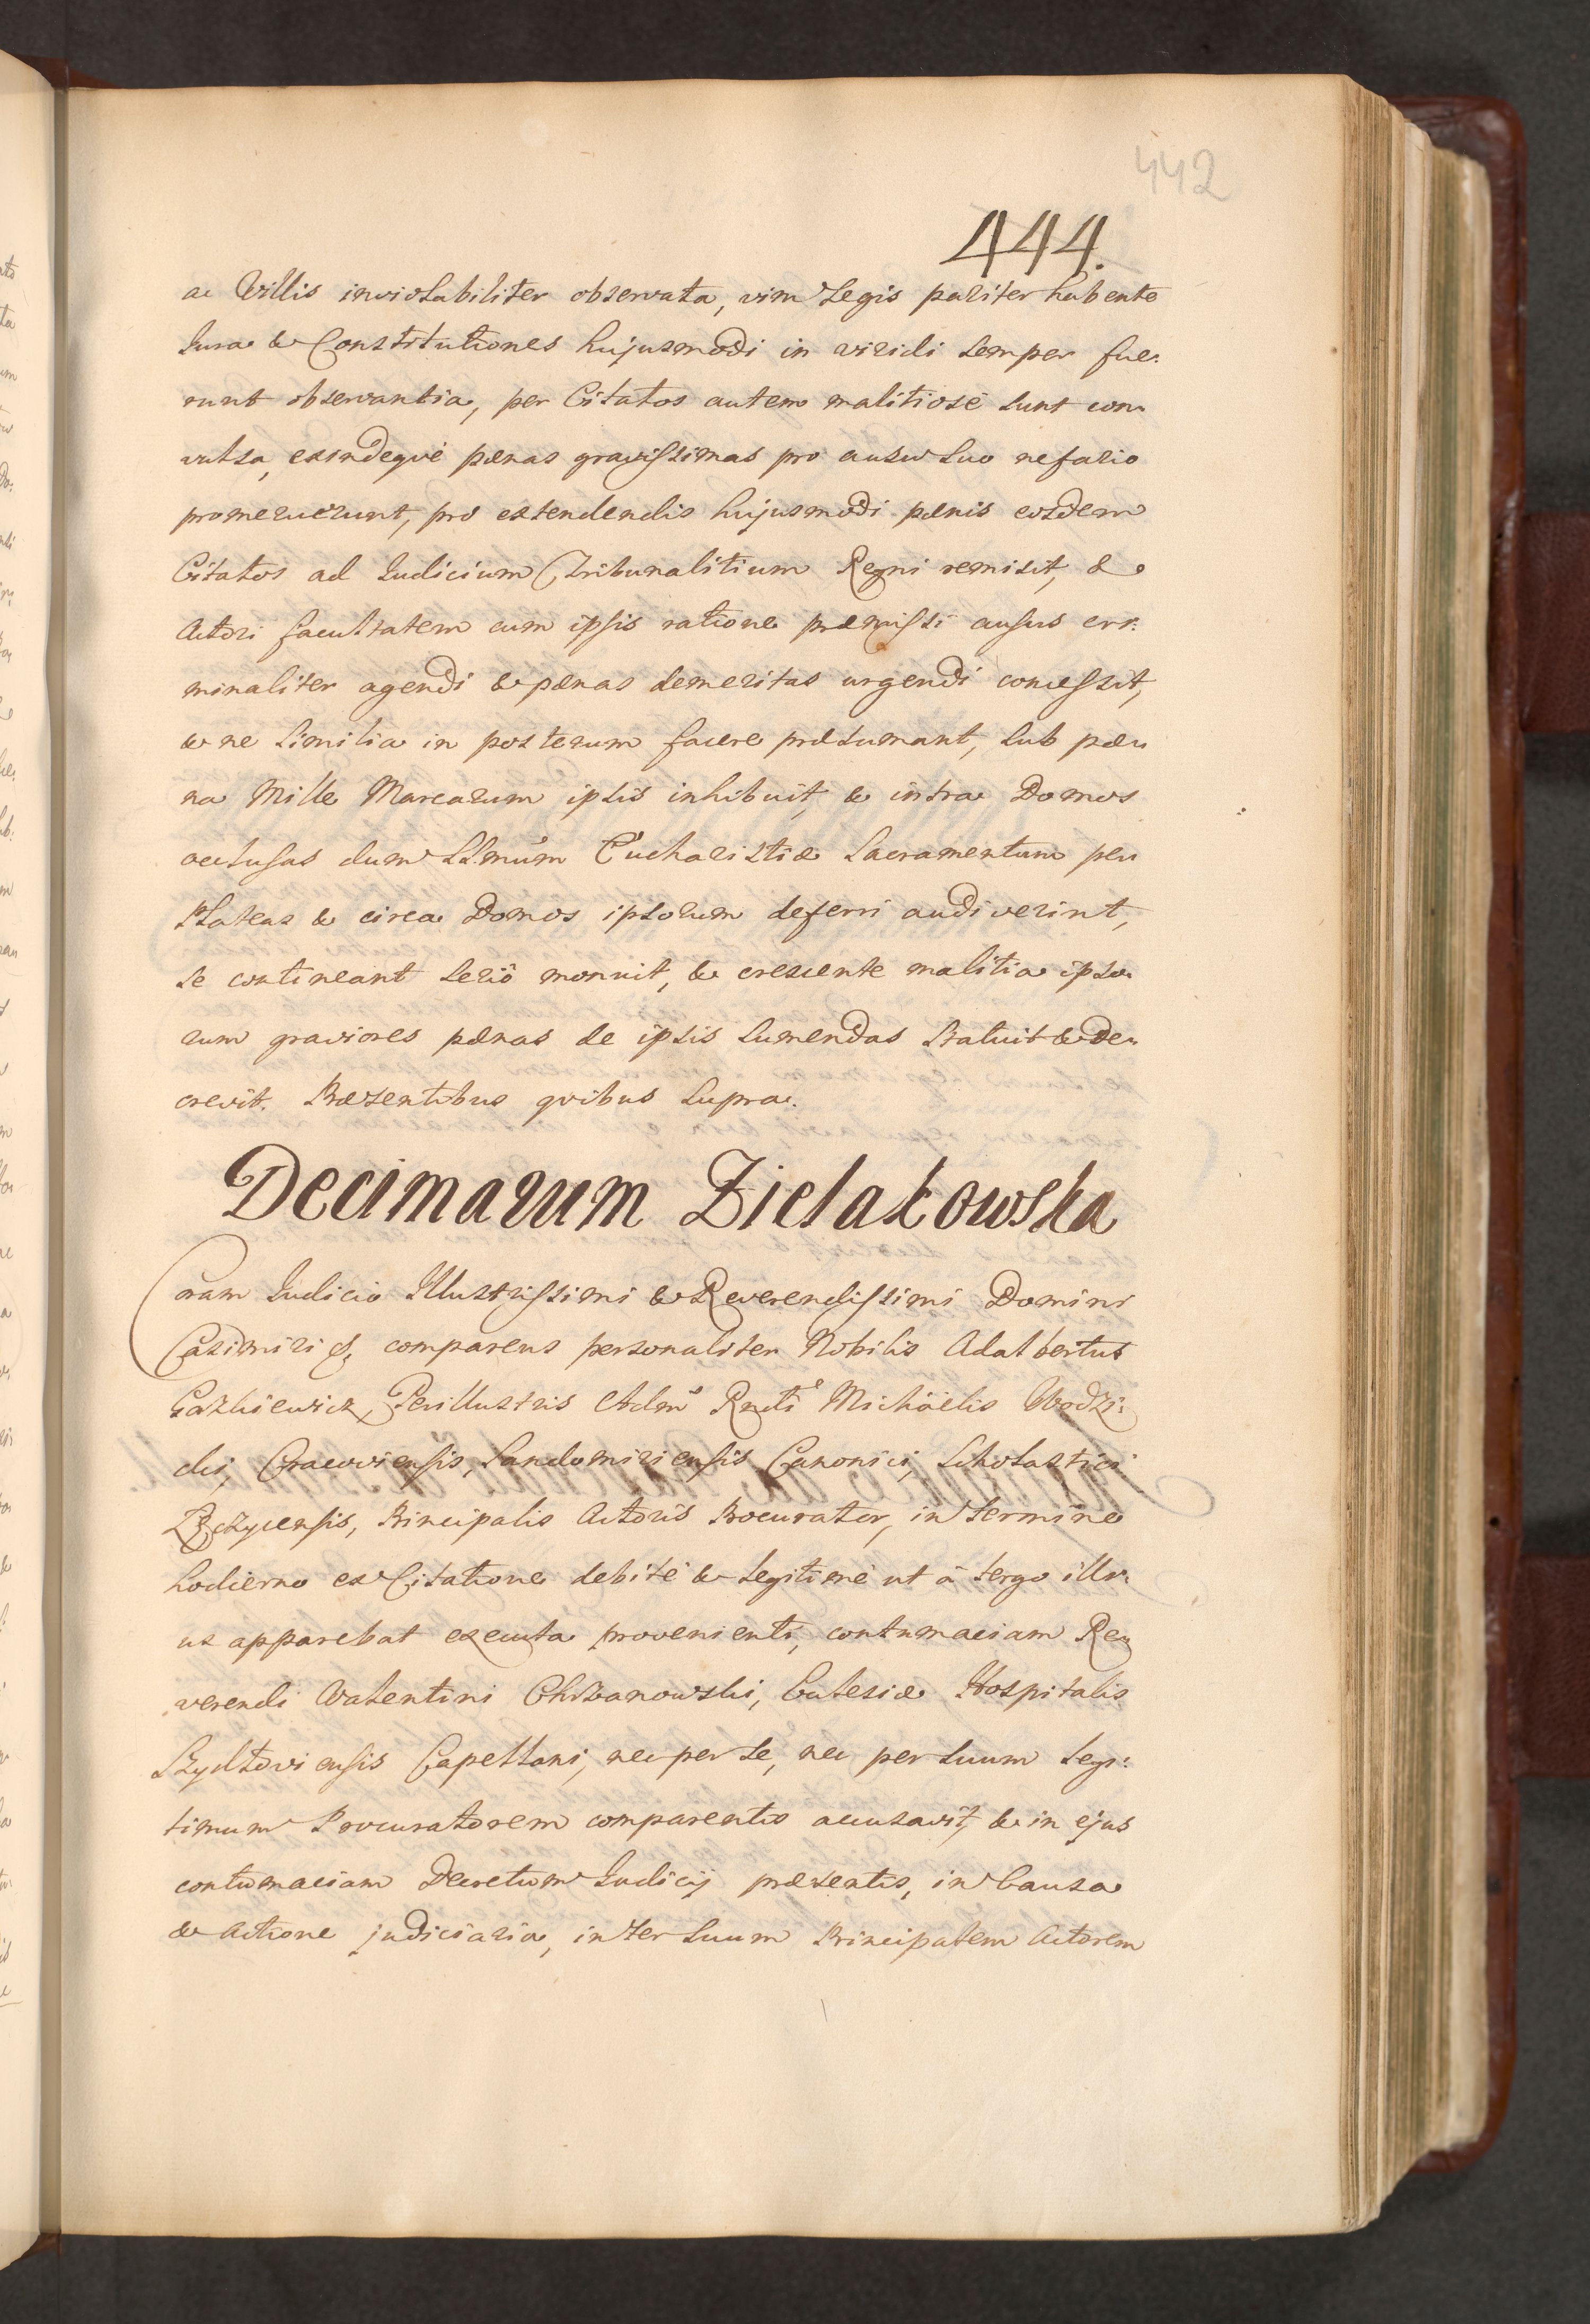 442
444.
ac Villis inviolabiliter observata, vim Legis pariter habente
Iura & Constitutiones hujusmodi in viridi semper fue-
runt observantia, per Citatos autem malitiosè sunt con-
vulsa, exindeqvè pænas gravissimas pro ausu suo nefario
promeruerunt, pro extendendis hujusmodi pænis eosdem
Citatos ad Iudicium Tribunalitium Regni remisit, &
Actori facultatem cum ipsis ratione præmissi ausus cri-
minaliter agendi & pænas demeritas urgendi concessit,
& ne similia in posterum facere præsumant, sub pæ-
na Mille Marcarum ipsis inhibuit, & intra Domos
occlusas dum SSmum Eucharistiæ Sacramentum per
Plateas & circa Domos ipsorum deferri audiverint,
se contineant seriò monuit, & crescente malitia ipso-
rum graviores pænas de ipsis sumendas statuit & de-
crevit. Præsentibus qvibus supra.
Decimarum Zielakowska
Coram Iudicio Illustrissimi & Reverendissimi Domini
Casimiri &c comparens personaliter Nobilis Adalbertus
Gazkiewicz, Perillustris Adm Rndi Michäelis Wodzi-
cki, Cracoviensis, Sandomiriensis Canonici, Scholastici
Principalis Actoris Procurator, in termino
hodierno ex Citatione debitè & legitimè ut à tergo illi-
us apparebat executa provenienti, contumaciam Re-
verendi Valentini Chrzanowski, Ecclesiæ Hospitalis
Szydloviensis Capellani, nec per se, nec per suum legi-
timum Procuratorem comparentis accusavit, & in ejus
contumaciam Decretum Iudicij præsentis, in Causa
& Actione judiciaria, inter suum Principalem Actorem